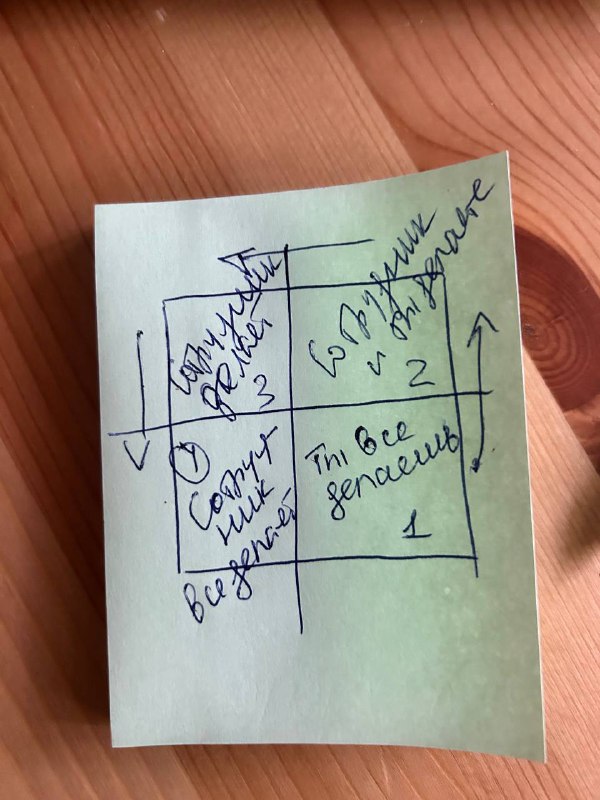 Сотрудник
делает
3
Сотрудник
и ты делаете
2
Ты все
делаешь
1
Сотруд
ник
все делает